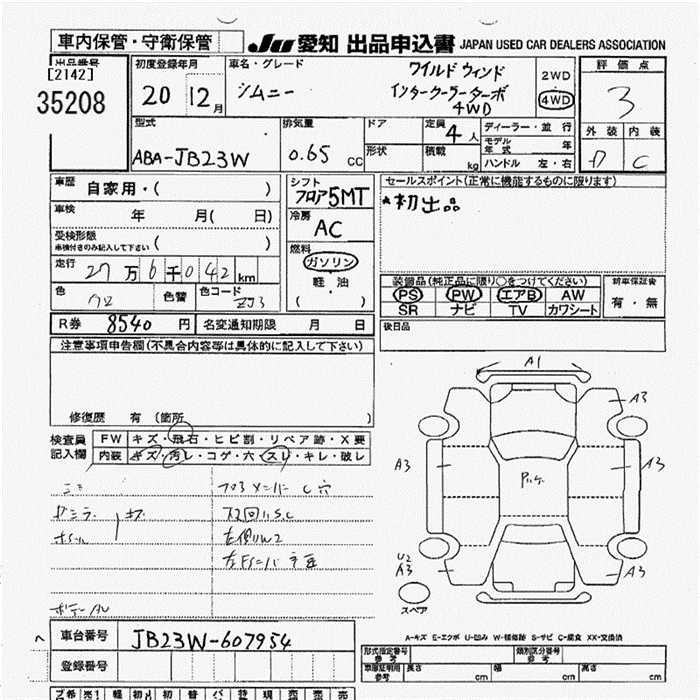 車内保管・守衛保管
JU 愛知 出品申込書 JAPAN USED CAR DEALERS ASSOCIATION
出品番号
[2142]
35208
初度登録年月
20 12月
車名・グレード
シムニー
ワイルドウィンド
インタークーラーターボ
4WD
2WD
4WD
評価点
3
外装 内装
C
型式
ABA-JB23W
排気量
0.65 CC
ドア
形状
定員
4人
積載
kg
ディーラー・並行
モデル年式 年
ハンドル 左・右
車歴
自家用・( )
車検
年 月( 日)
受検形態
車検付きのみ記入して下さい
( )
走行
27万6千042km
色
色替
色コード
ZJ3
シフト
フロア5MT
冷房
AC
燃料
ガソリン
軽・油
( )
セールスポイント(正常に機能するものに限ります)
*初出品
装備品(純正品に限り○をつけてください)
PS PW エアB AW
SR ナビ TV カワシート
新車保証書
有・無
R券 8540円
名変通知期限 月 日
後日品
注意事項申告欄(不具合内容等は具体的に記入して下さい)
修復歴 有(箇所 )
検査員記入欄
FW キズ・飛石・ヒビ割・リペア跡・X要
内装 キズ・汚レ・コゲ・穴・スレ・キレ・破レ
キズ
ボデーAU
A1
A3
A3
A3
U2
A3
A3
スペア
A-キズ E-エクボ U-凹み W-補修跡 S-サビ C-腐食 XX-交換済
車台番号
JB23W-607954
登録番号
形式指定番号
参考
類別区分番号
参考
車庫証明用
参考
長さ
cm
幅
cm
高さ
cm